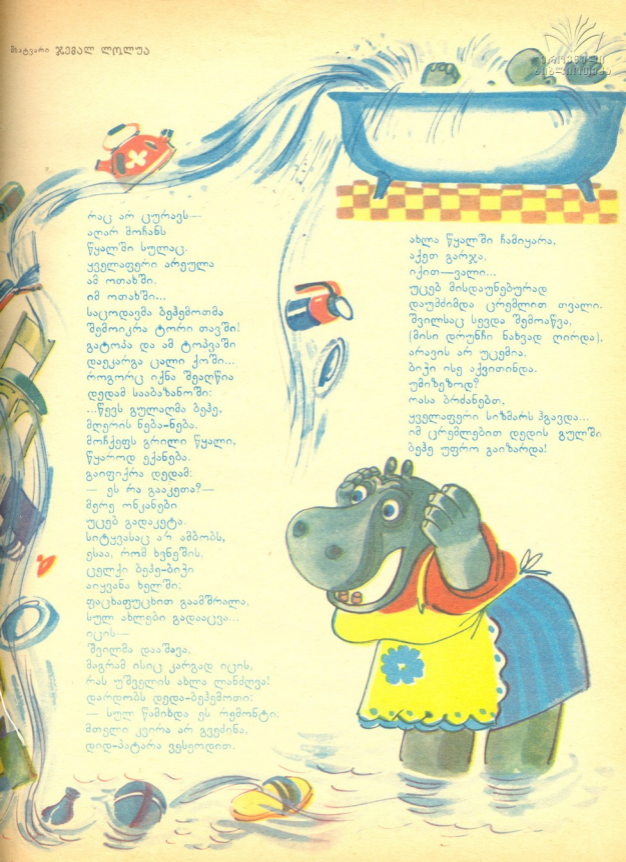 მხატვარი ჯემალ ლოლუა
ეროვნული
ბიბლიოთეკა
რაც არ ცურავს—
აღარ მოჩანს
წყალში სულაც.
ყველაფერი არეულა
ამ ოთახში,
იმ ოთახში...
საცოდავმა ბეჰემოთმა
შემოიკრა ტორი თავში!
გატოპა და ამ ტოპვაში
დაეკარგა ცალი ქოში...
როგორც იქნა შეაღწია
დედამ სააბაზანოში:
...წევს გულაღმა ბეჰე,
მღერის ნება-ნება.
მოჩქეფს გრილი წყალი,
წყაროდ ექანება.
გაიფიქრა დედამ:
— ეს რა გააკეთა?—
მერე ონკანები
უცებ გადაკეტა.
სიტყვასაც არ ამბობს,
ესაა, რომ ხვნეშის,
ცელქი ბეჰე-ბიჭი
აიყვანა ხელში;
ფაცხაფუცხით გაამშრალა,
სულ ახლები გადააცვა...
იცის—
შვილმა დააშავა,
მაგრამ ისიც კარგად იცის,
რას უშველის ახლა ლანძღვა!
დარდობს დედა-ბეჰემოთი:
— სულ წამიხდა ეს რემონტი;
მთელი კვირა არ გვეძინა,
დიდ-პატარა ვესერდით.
ახლა წყალში ჩამიყარა,
აქეთ გარჯა,
იქით—ვალი...
უცებ მისდაუნებურად
დაუმძიმდა ცრემლით თვალი.
შვილსაც სევდა შემოაწვა,
(მისი დრუნჩი ნახვად ღირდა),
არავის არ უცემია.
ბიჭი ისე აქვითინდა.
უმიზეზოდ?
რასა ბრძანებთ,
ყველაფერი სიზმარს ჰგავდა...
იმ ცრემლებით დედის გულში
ბეჰე უფრო გაიზარდა!